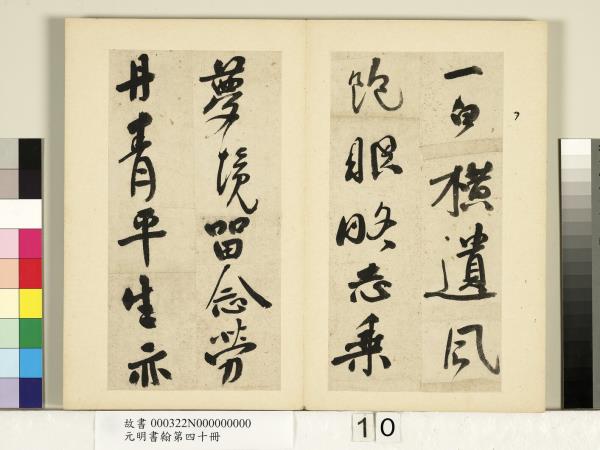 一白橫遺風
飽眼略志乘
夢境留念勞
丹青平生亦
故書 000322N000000000
元明書翰第四十冊
10